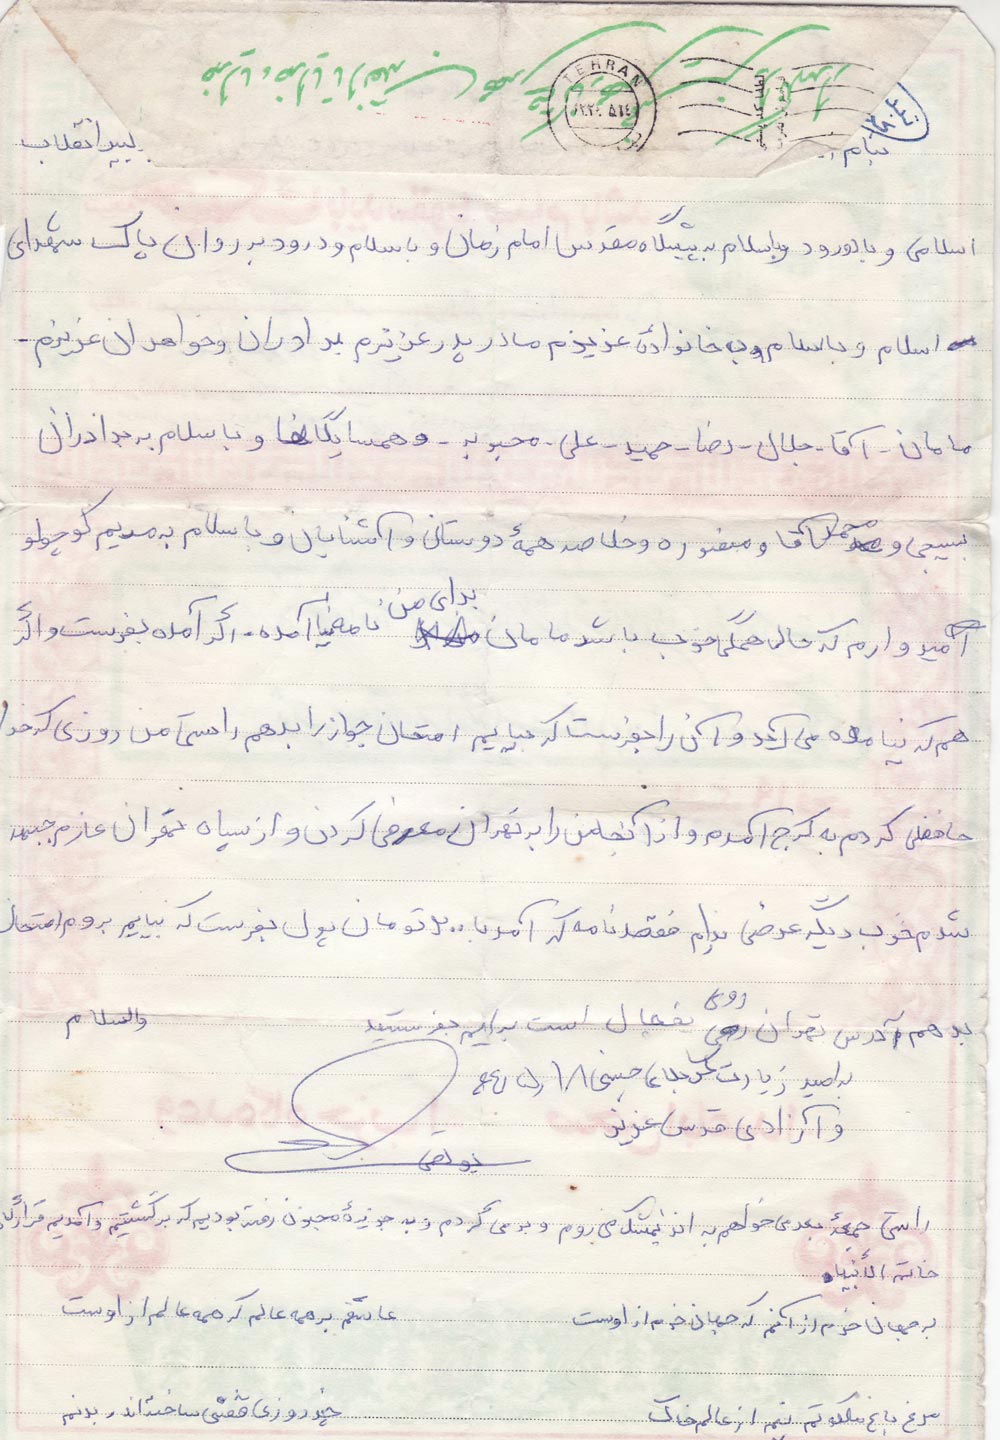 TEHRAN
بنام ... انقلاب
اسلامی و با درود و با سلام به پیشگاه مقدس امام زمان و با سلام و درود بر روان پاک شهدای
اسلام و با سلام به خانوادهٔ عزیزم مادر پدر عزیزم برادران و خواهران عزیزم -
مامان - آقا - جلال - رضا - حمید - علی - محبوبه - و همسایگانها و با سلام به برادران
بسیجی و محمد آقا و منصوره و خلاصه همهٔ دوستان و آشنایان و با سلام به مریم کوچولو
امیدوارم که حال همگی خوب باشد مامان برای من نامه آمده - اگر آمده بفرست و اگر
هم که نیامده می آید و آن را بفرست که بیایم امتحان جواز را بدهم راستی من روزی که خدا
حافظی کردم به کرج آمدم و از آنجا من را به تهران معرفی کردن و از سپاه تهران عازم جبهه
شدم خوب دیگر عرضی ندارم فقط نامه که آمد با ۲۰۰ تومان پول بفرست که بیایم بروم امتحان
بدهم آدرس تهران روی یخچال است برایم بفرستید والسلام
به امید زیارت کربلای حسینی
و آزادی قدس عزیز
راستی جمعهٔ بعدی خواهم به اندیمشک می روم و برمی گردم و به جزیرهٔ مجنون رفته بودیم که برگشتیم و آمدیم قرارگاه
خاتم الأنبیاء
به جهان خرم از آنم که جهان خرم از اوست عاشقم بر همه عالم که همه عالم از اوست
مرغ باغ ملکوتم نیم از عالم خاک چند روزی قفسی ساخته اند از بدنم